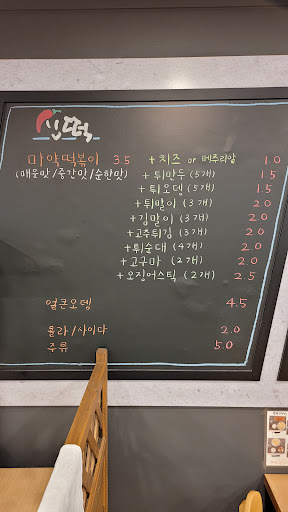 신떡
마약떡볶이 3.5 +치즈 or 메추리알 1.0
(매운맛/중간맛/순한맛) +튀만두 (5개) 1.5
+튀오뎅 (5개) 1.5
+튀말이 (3개) 2.0
+김말이 (3개) 2.0
+고추튀김 (3개) 2.0
+튀순대 (4개) 2.0
+고구마 (2개) 2.0
+오징어스틱 (2개) 2.5
얼큰오뎅 4.5
콜라/사이다 2.0
주류 5.0